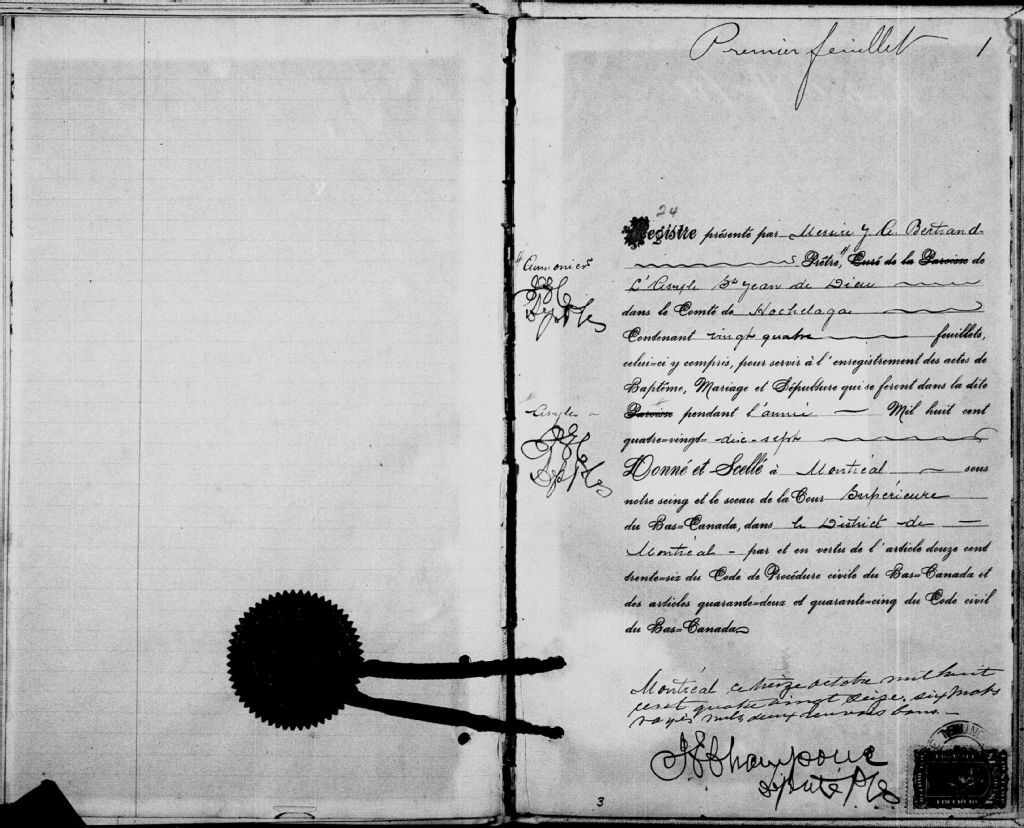 Premier feuillet 1
24
Registre présenté par Messire J. A. Bertrand
Prêtre, " Curé de la Paroisse de
" Aumonier
L'Asyle St Jean de Dieu
dans le Comté de Hochelaga
Contenant vingt quatre feuillets,
celui=ci y compris, pour servir à l'enregistrement des actes de
Baptême, Mariage et Sépulture qui se feront dans la dite
" Asyle
Paroisse pendant l'année Mil huit cent
quatre=vingt= dix-sept
Donné et Scellé à Montréal sous
notre seing et le sceau de la Cour Supérieure
du Bas=Canada, dans le District de
Montréal - par et en vertu de l'article douze cent
trente=six du Code de Procédure civile du Bas=Canada et
des articles quarante=deux et quarante=cinq du Code civil
du Bas=Canada
Montréal ce treize octobre mil huit
cent quatre vingt seize. six mots
rayés nuls deux renvois bons.
Député
3